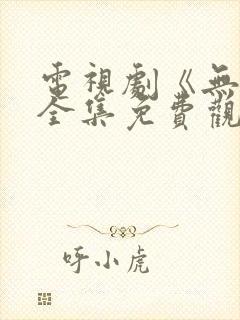 電視劇《無
全集免費觀
呼小虎